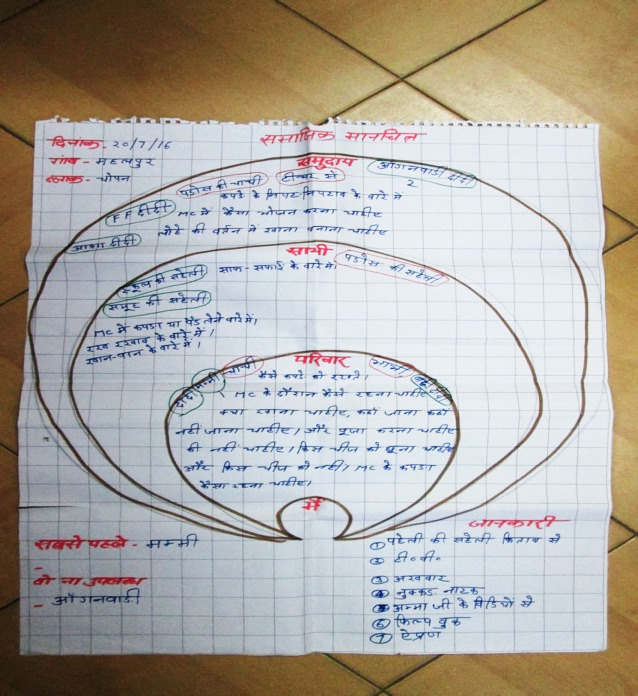 सामाजिक मानचित्र
दिनांक - 20/7/16
गांव - महलपुर
ब्लाक - चोपन
समुदाय
आंगनवाडी दीदी
2
पडोस की चाची
टीचर से
कपडे के निपटारे के बारे में
FF दीदी
MC में कैसा भोजन करना चाहीए
आशा दीदी
लोहे की बर्तन में खाना बनाना चाहीए
साथी
पडोस की सहेली
स्कूल की सहेली
साफ-सफाई के बारे में
समूह की सहेली
MC में कपडा या पैड लेने बारे में।
रख रखाव के बारे में।
खान-पान के बारे में।
परिवार
दीदी
मम्मी
चाची
भाभी
कैसे कपडे को रखते।
MC के दौरान कैसे रहना चाहीए
क्या खाना चाहीए, कहाँ जाना कहाँ
नहीं जाना चाहीए। और पूजा करना चाहीए
की नहीं चाहीए। किस चीज को छूना चाहीए
और किस चीज को नहीं। MC के कपडा
कैसा रहना चाहीए।
में
सबसे पहले - मम्मी
-
वो ना उपलब्ध
- आँगनवाडी
जानकारी
① पहेली की सहेली किताब से
② टी०वी०
③ अखवार
④ नुक्कड नाटक
⑤ अम्मा जी के विडियों से
⑥ फिल्प बुक
⑦ ऐप्रेण